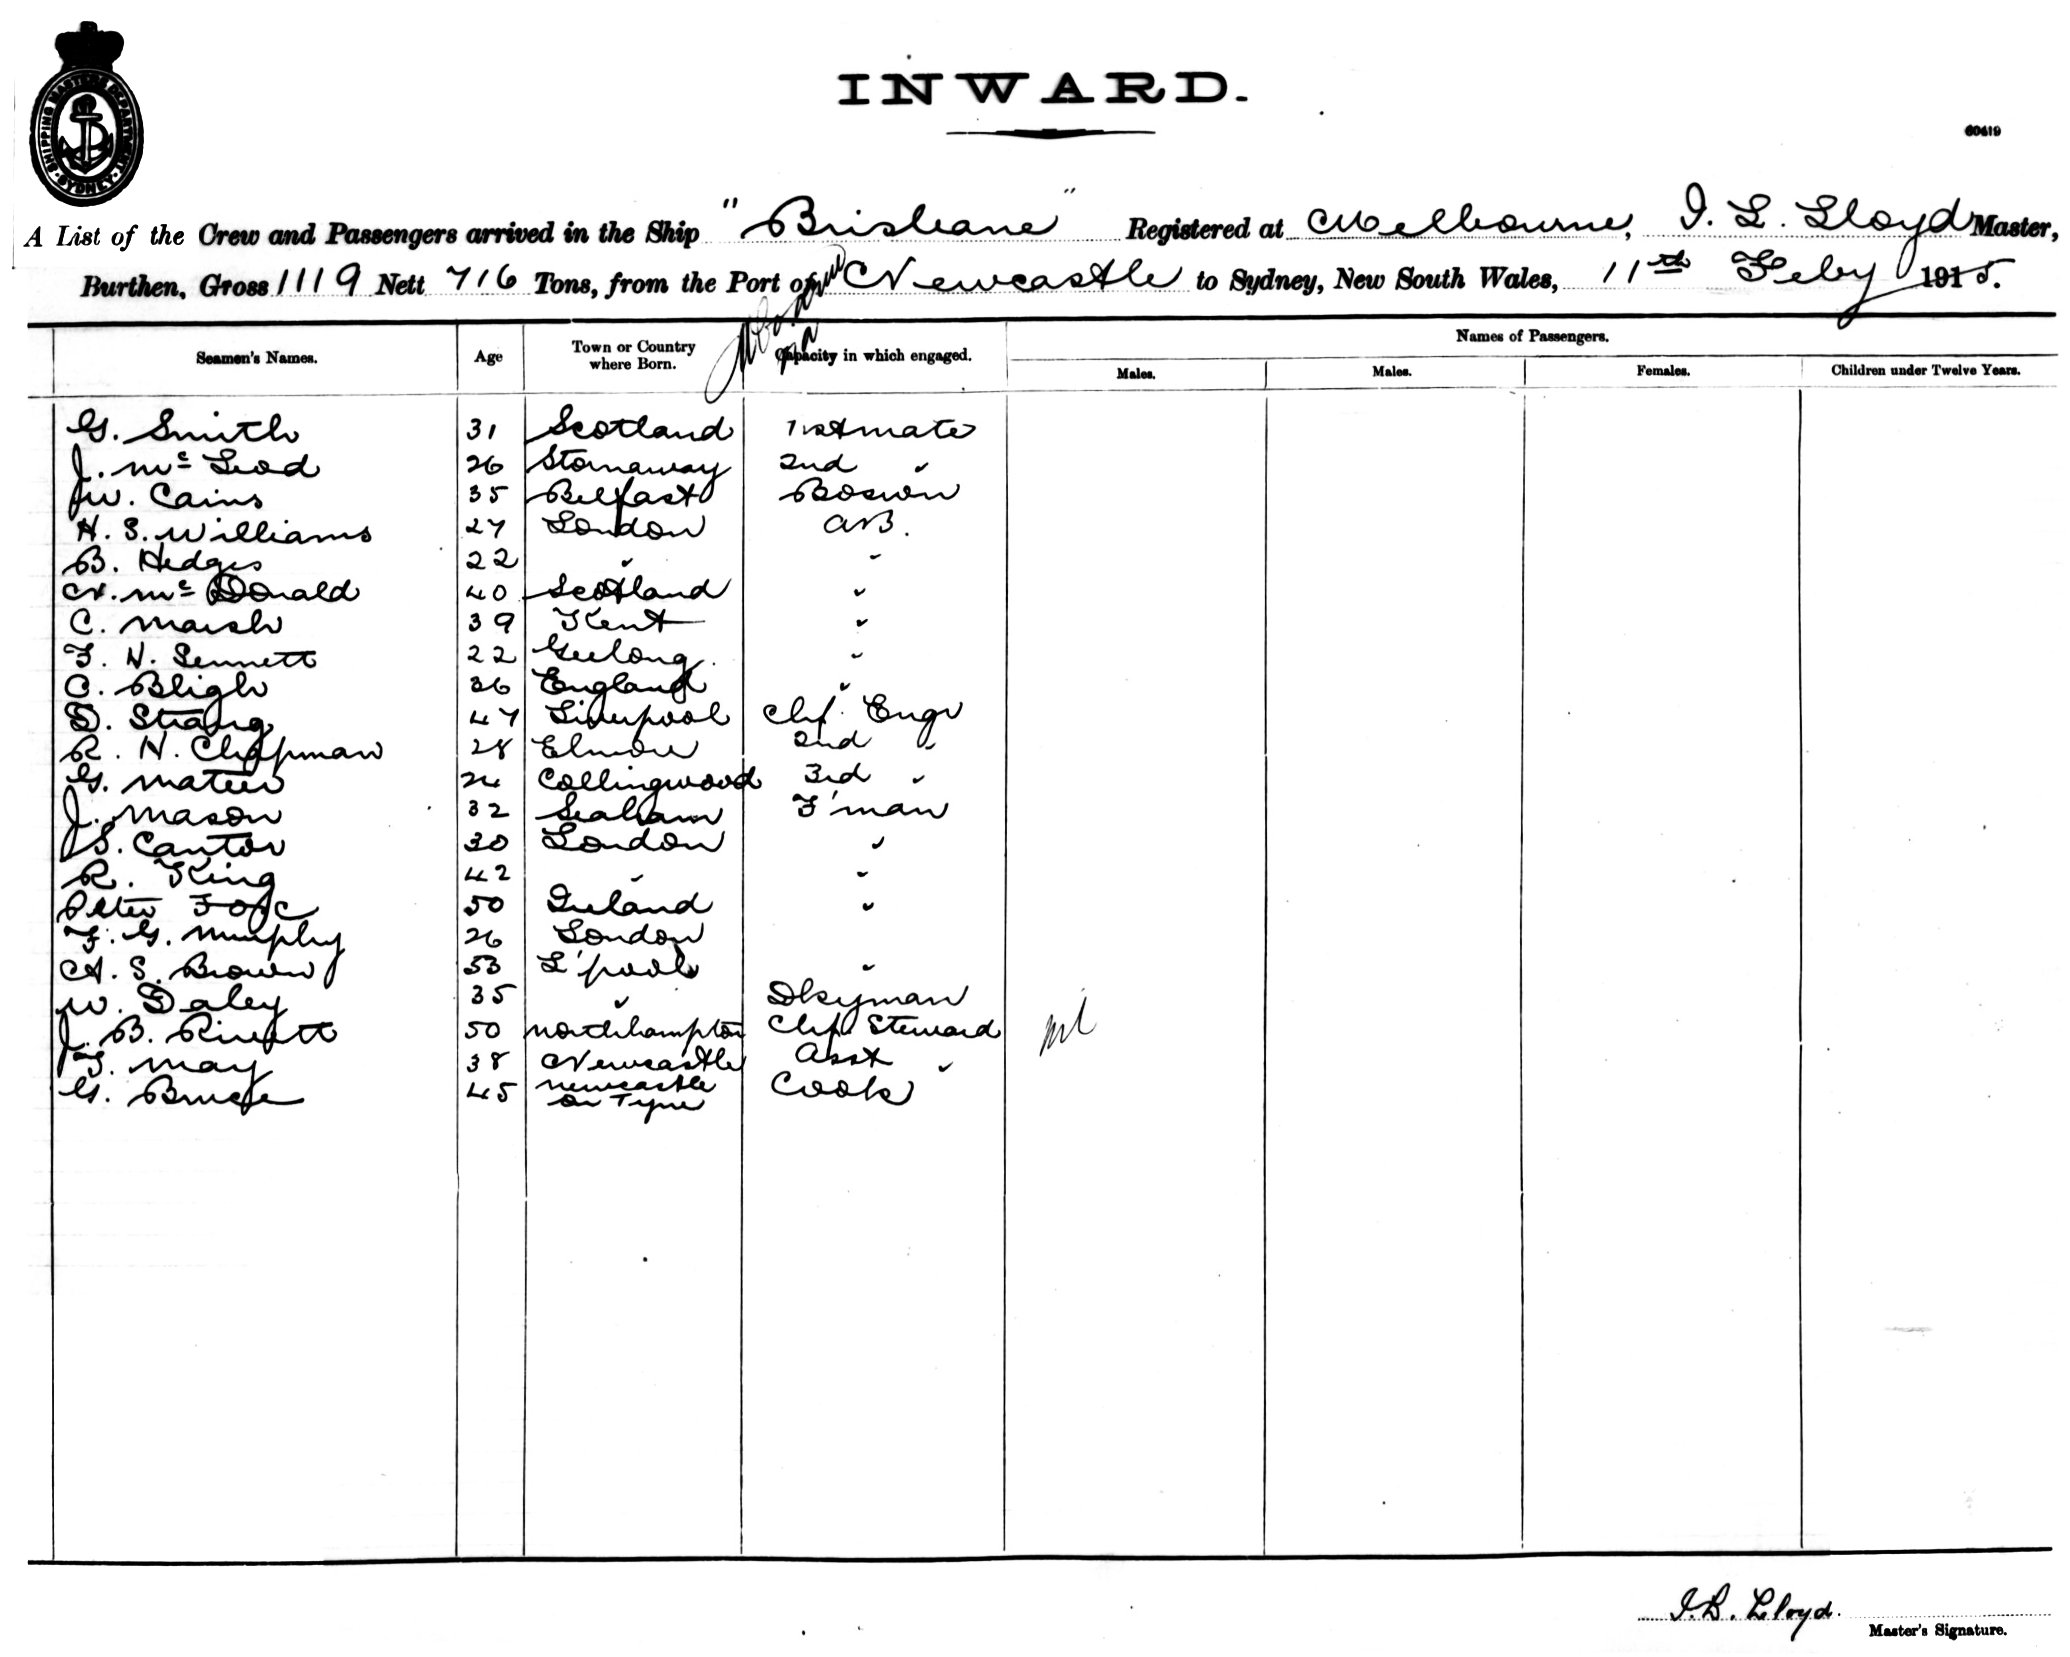 SHIPPING MASTERS DEPARTMENT
SYDNEY
INWARD.
60419
A List of the Crew and Passengers arrived in the Ship "Brisbane" Registered at Melbourne, I. L. Lloyd Master,
Burthen, Gross 1119 Nett 716 Tons, from the Port of Newcastle to Sydney, New South Wales, 11th Feby 1915.
Seamen's Names. Age Town or Country where Born. Capacity in which engaged. Names of Passengers.
Males. Males. Females. Children under Twelve Years.
G. Smith 31 Scotland 1st mate
J. Mc Leod 26 Stornaway 2nd "
W. Cains 35 Belfast Bosun
H. S. Williams 27 London AB.
B. Hedges 22 " "
A. Mc Donald 40 Scotland "
C. Marsh 39 Kent "
F. H. Sennett 22 Geelong "
C. Bligh 36 England "
D. Strang 47 Liverpool Chf. Engr
R. H. Chapman 28 Elmore 2nd "
G. Mateer 24 Collingwood 3rd "
J. Mason 32 Seaham F'man
S. Cantor 30 London "
R. King 42 " "
Peter 50 Ireland "
F. G. Murphy 26 London
A. S. Brown 53 L'pool "
W. Daley 35 " Dkyman
J. B. Rivett 50 Northampton Chf Steward nil
T. May 38 Newcastle Asst "
G. Bruce 45 Newcastle on Tyne Cook
I. L. Lloyd.
Master's Signature.